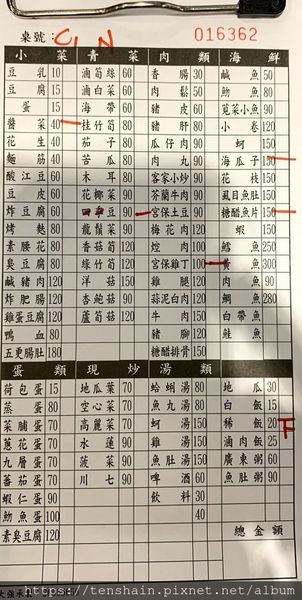 桌號: CLN 016362
小菜 青菜 肉類 海鮮
豆乳 10 滷筍絲 60 香腸 30 鹹魚 50
豆腐 15 滷白菜 60 肉鬆 50 魩魚 80
蛋 15 海帶 60 豬皮 60 莧菜小魚 90
醬菜 40 桂竹筍 80 豬肝 80 小卷 120
花生 40 茄子 80 瓜仔肉 90 蚵 150
麵筋 40 苦瓜 80 肉丸 90 海瓜子 130
酸江豆 60 木耳 80 客家小炒 90 花枝 150
豆皮 60 花椰菜 90 芥蘭牛肉 90 虱目魚肚 150
炸豆腐 60 四季豆 90 宮保土豆 90 糖醋魚片 150
烤麩 80 龍鬚菜 90 梅花肉 120 蝦 150
素腰花 80 香菇筍 120 焢肉 100 鱈魚 250
臭豆腐 80 綠竹筍 120 宮保雞丁 100 黃魚 300
鹹豬肉 120 洋菇 150 雞腿 90
炸肥腸 120 杏鮑菇 90 蒜泥白肉 120 鯛魚 280
雞蛋豆腐 120 蘆筍菇 120 牛肉 150 白帶魚
鴨血 80 豬腳 120 鮭魚
五更腸肚 180 糖醋排骨 150
蛋類 現炒 湯類
荷包蛋 15 地瓜葉 70 蛤蜊湯 80 地瓜 30
蒸蛋 80 空心菜 70 魚丸湯 80 白飯 15
菜脯蛋 70 高麗菜 70 蚵湯 150 稀飯 20
蔥花蛋 70 水蓮 90 雞湯 150 滷肉飯 25
九層蛋 70 菠菜 90 魚肚湯 150 廣東粥 60
蕃茄蛋 70 川七 90 啤酒 60 魚肚粥 90
蝦仁蛋 90 飲料 30
魩魚蛋 100 40
素臭豆腐 120 總金額
https://tenshain.pixnet.net/album